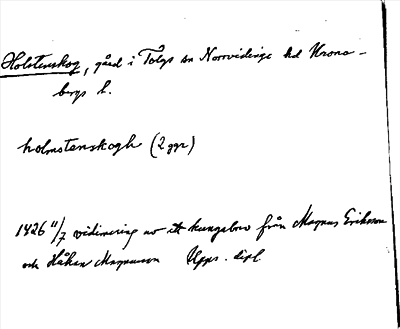 Holstenskog, gård i Tolgs sn Norrvidinge hd Krono-
bergs l.
holmstenskogh (2 ggr)
1426 11/7 vidimering av ett kungabrev från Magnus Eriksson
och Håkan Magnusson Upps. dipl.